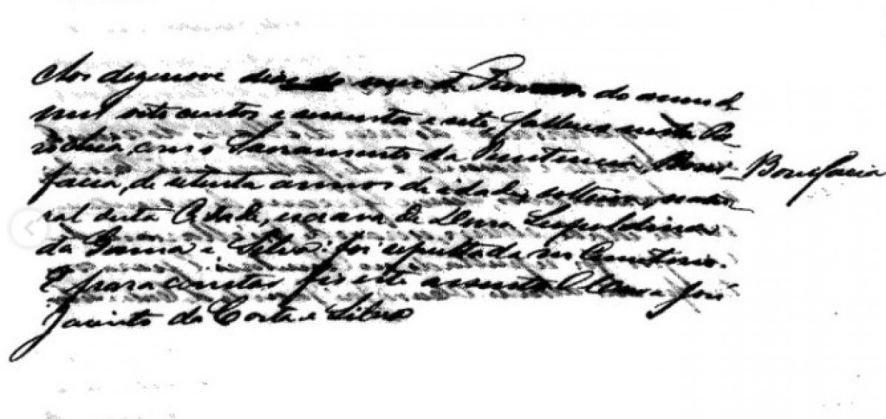 Aos dezenove dias do mez de Fevereiro do anno de
mil oito centos e sessenta e sete, falleceu nesta Pa-
rochia, com o Sacramento da Penitencia, Boni-
facia, de setenta annos de idade, solteira, natu-
ral desta Cidade, escrava de Dona Leopoldina
da Gama e Silva: foi sepultada no Cemiterio.
E para constar fiz este assento O Cura José
Jacinto da Costa e Silva
Bonifacia